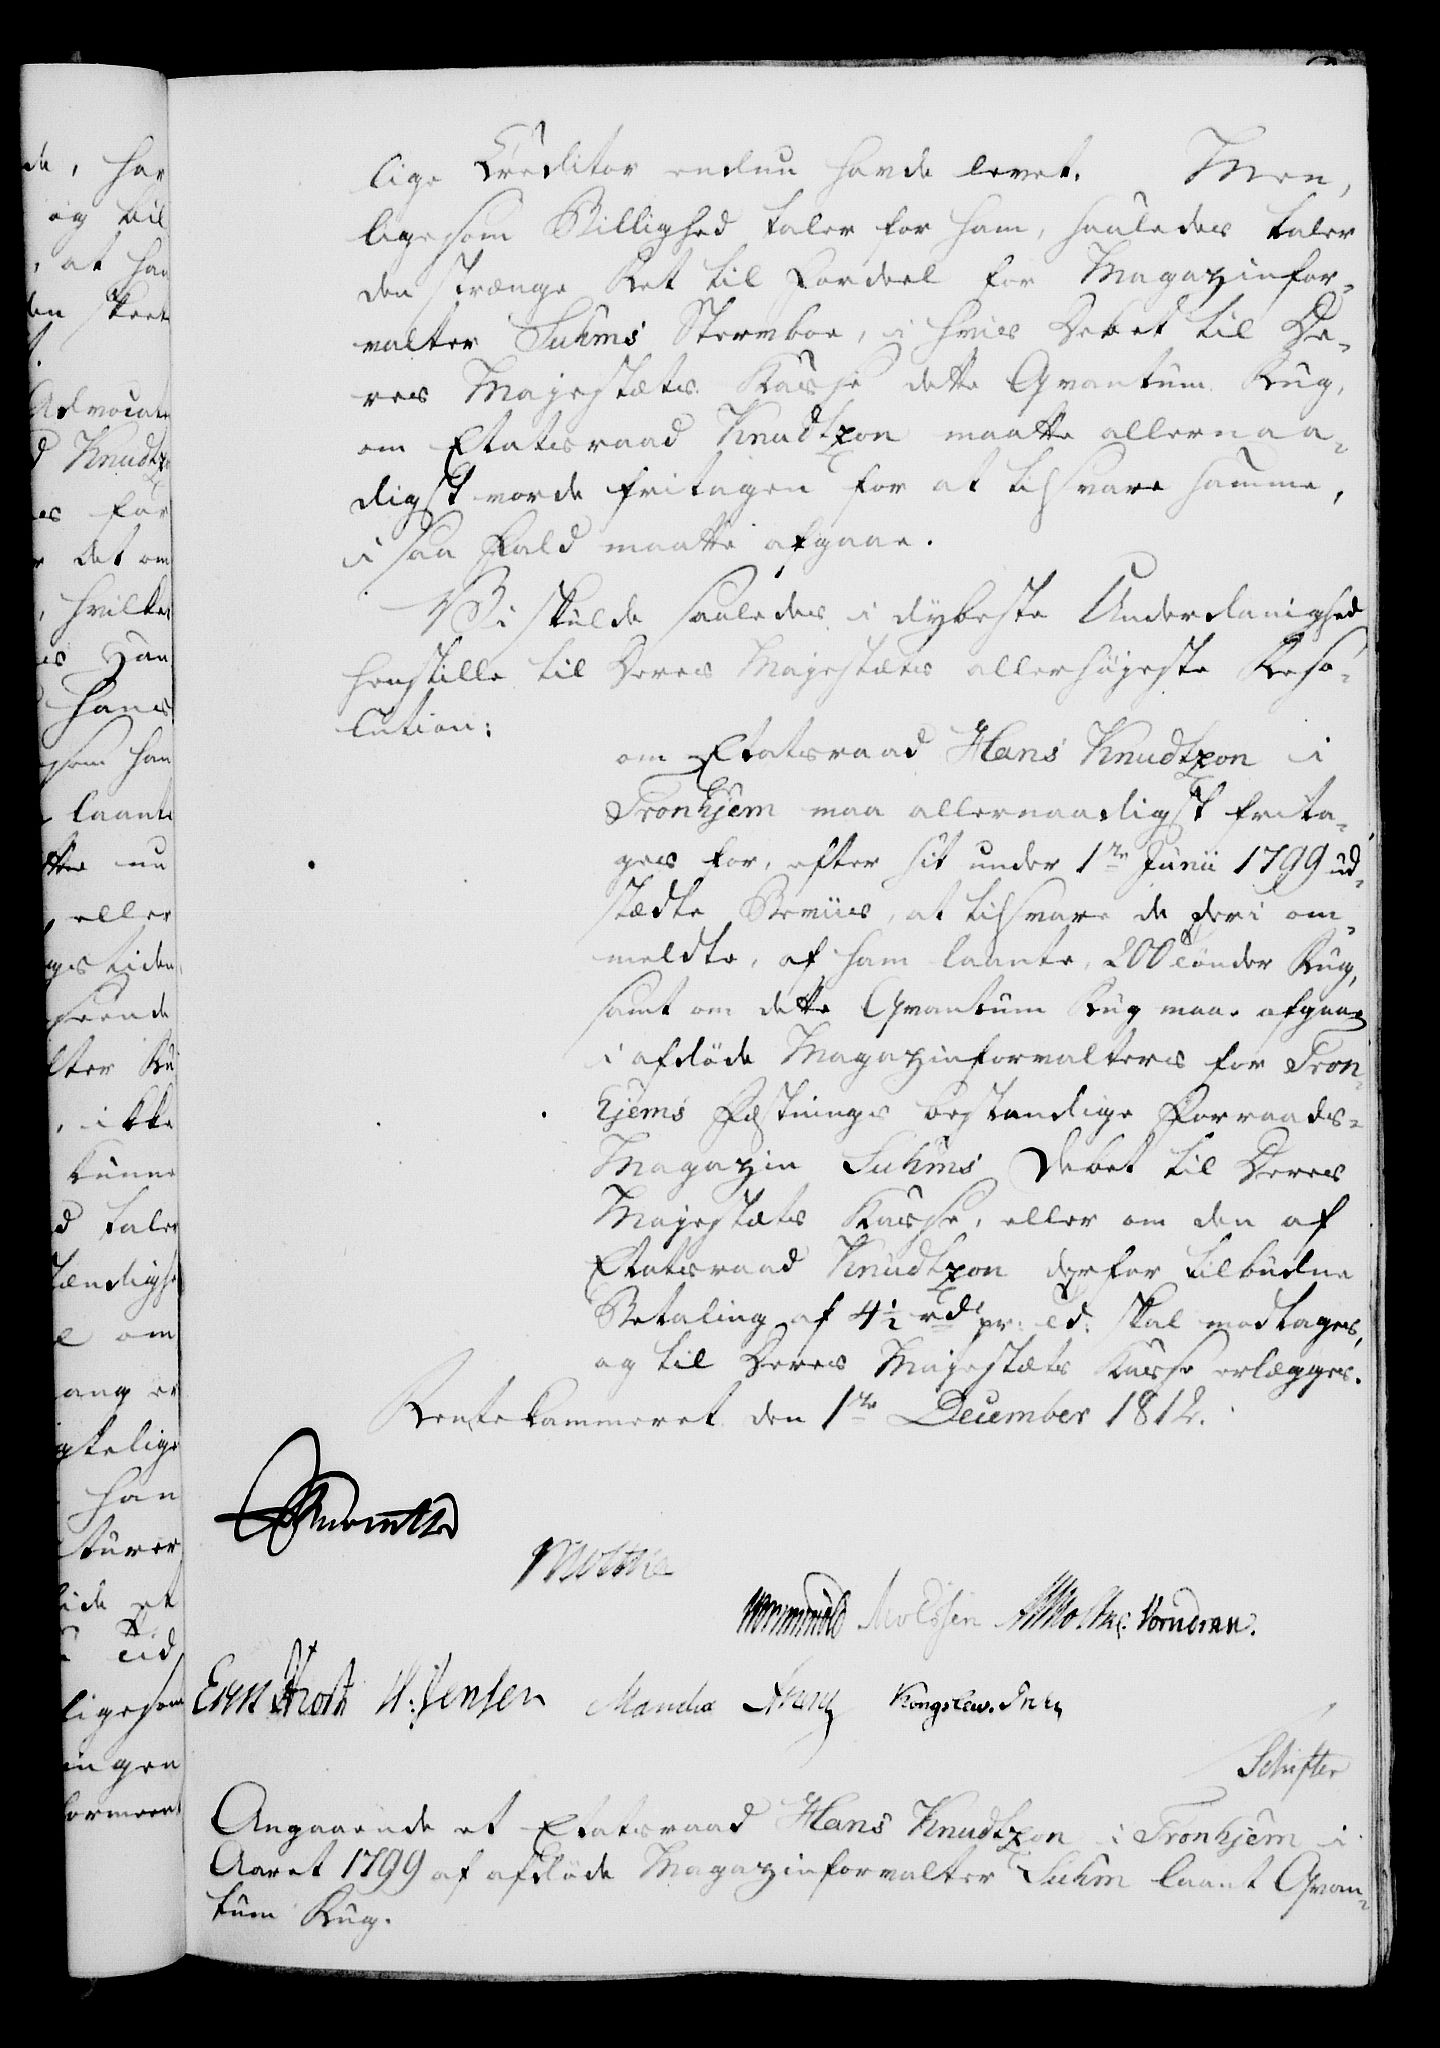 lige Creditor endnu havde levet. Men,
ligesom Billighed taler for ham, saaledes taler
den strænge Ret til Fordeel for Magazinfor-
valter Suhms Stervboe, i hvis Debet til De-
res Majestæts Kasse dette Qvantum Rug,
om Etatsraad Knudtzon maatte allernaa-
digst vorde fritagen for at tilsvare samme,
i saa Fald maatte afgaae.
Vi skulde saaledes i dybeste Underdanighed
henstille til Deres Majestæts allerhøjeste Reso-
lution:
om Etatsraad Hans Knudtzon i
Tronhjem maa allernaadigst frita-
ges for, efter sit under 1te Junii 1799 ud-
stædte Beviis, at tilsvare de deri om-
meldte, af ham laante, 200 Tønder Rug,
samt om dette Qvantum Rug maae afgaae
i afdøde Magazinforvalters for Tron-
hjems Fæstnings bestandige Forraads-
Magazin Suhms Debet til Deres
Majestæts Kasse, eller om den af
Etatsraad Knudtzon derfor tilbudne
Betaling af 4½ rd. pr: Td: skal modtages,
og til Deres Majestæts Kasse erlægges.
Rentekammeret den 1te December 1812.
Wormskiold Monrad Vorndran.
W: Jensen Manthe Kongslew.
Schifter
Angaaende et Etatsraad Hans Knudtzon i Tronhjem i
Aaret 1799 af afdøde Magazinforvalter Suhm laant Qvan-
tum Rug.